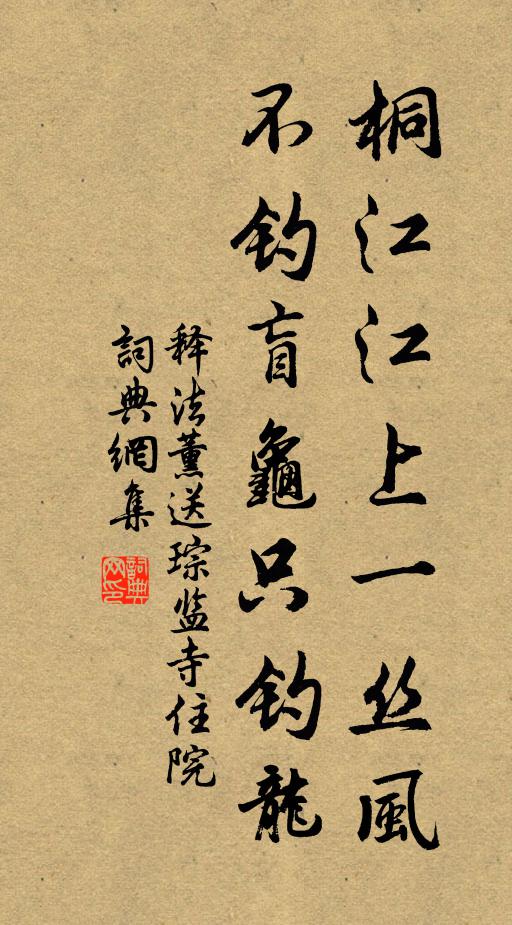 桐江江上一丝風
不钓盲龜只钓龍
释法薰送琮监寺住院
詞典網集
詞典網印